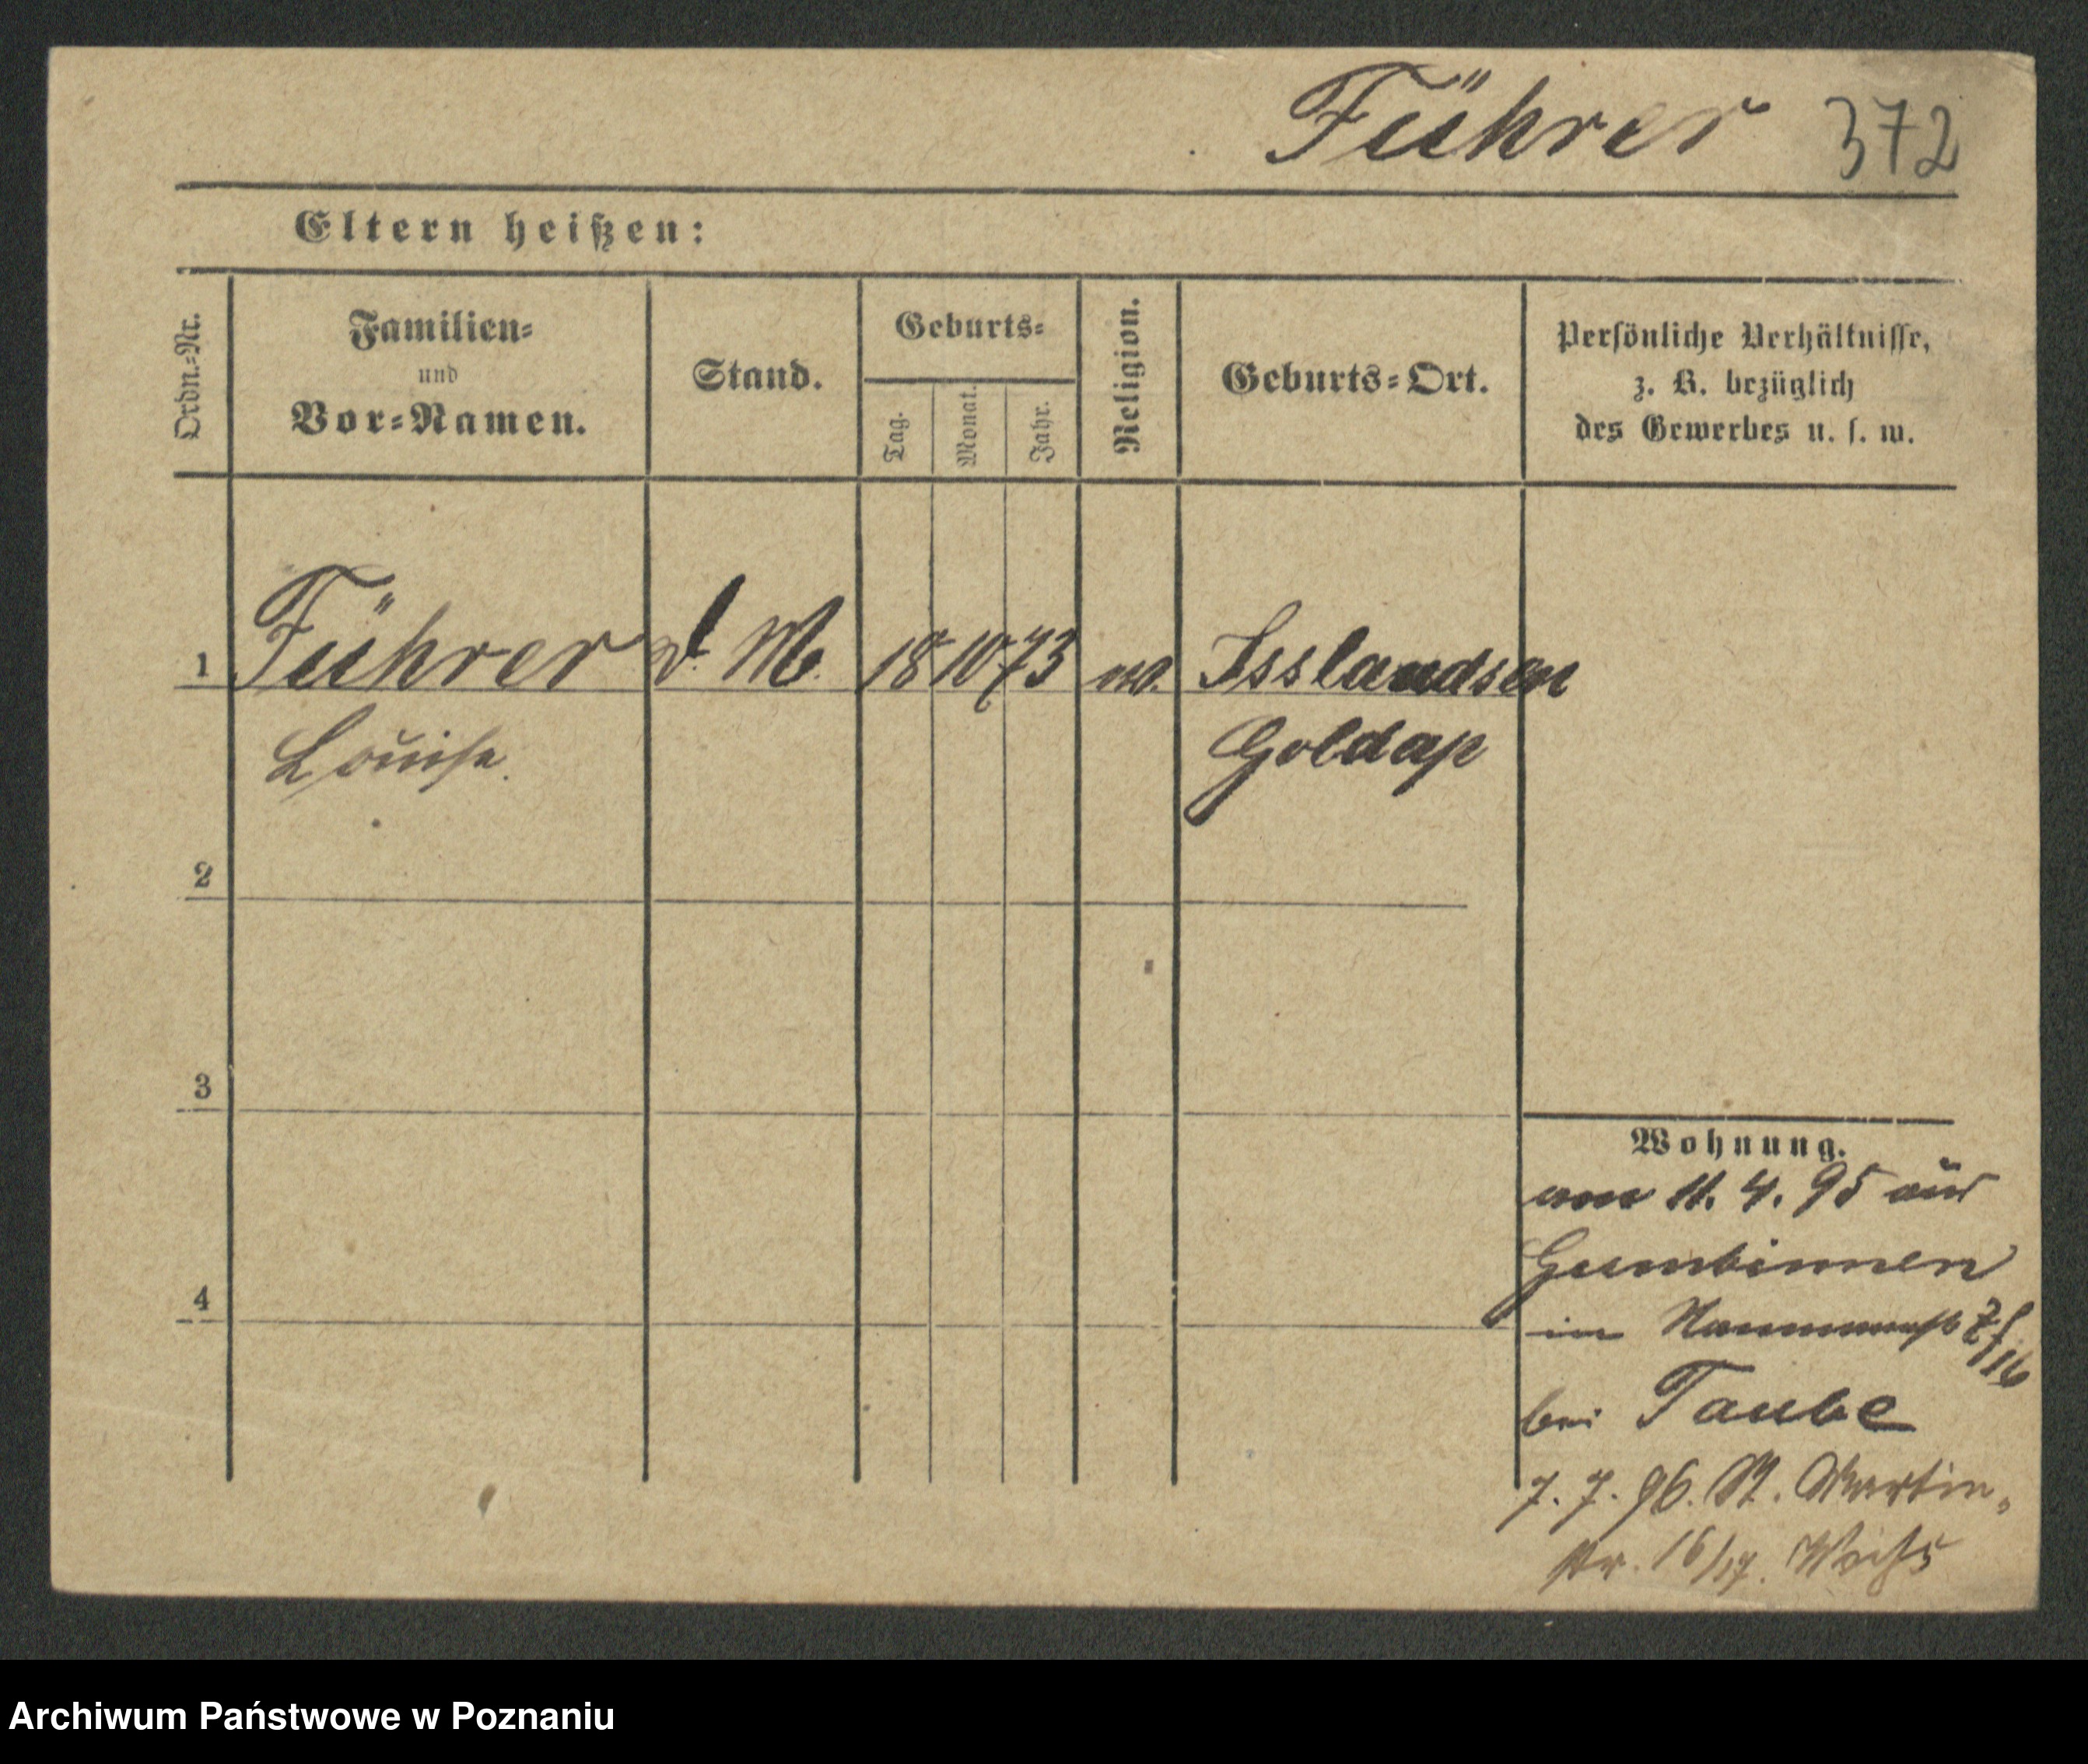 Führer 372
Eltern heißen:
Ordn.-Nr.
Familien-
und
Vor-Namen.
Stand.
Geburts-
Tag.
Monat.
Jahr.
Religion.
Geburts-Ort.
Persönliche Verhältnisse,
z. B. bezüglich
des Gewerbes u. s. w.
1 Führer d. M. 18 10 73 Isslandsen
Louise. Goldap
2
3
4
Wohnung.
11. 4. 95 aus
Gumbinnen
in
bei Taube
7. 7. 96. St. Martin-
str. 16/17.
Archiwum Państwowe w Poznaniu